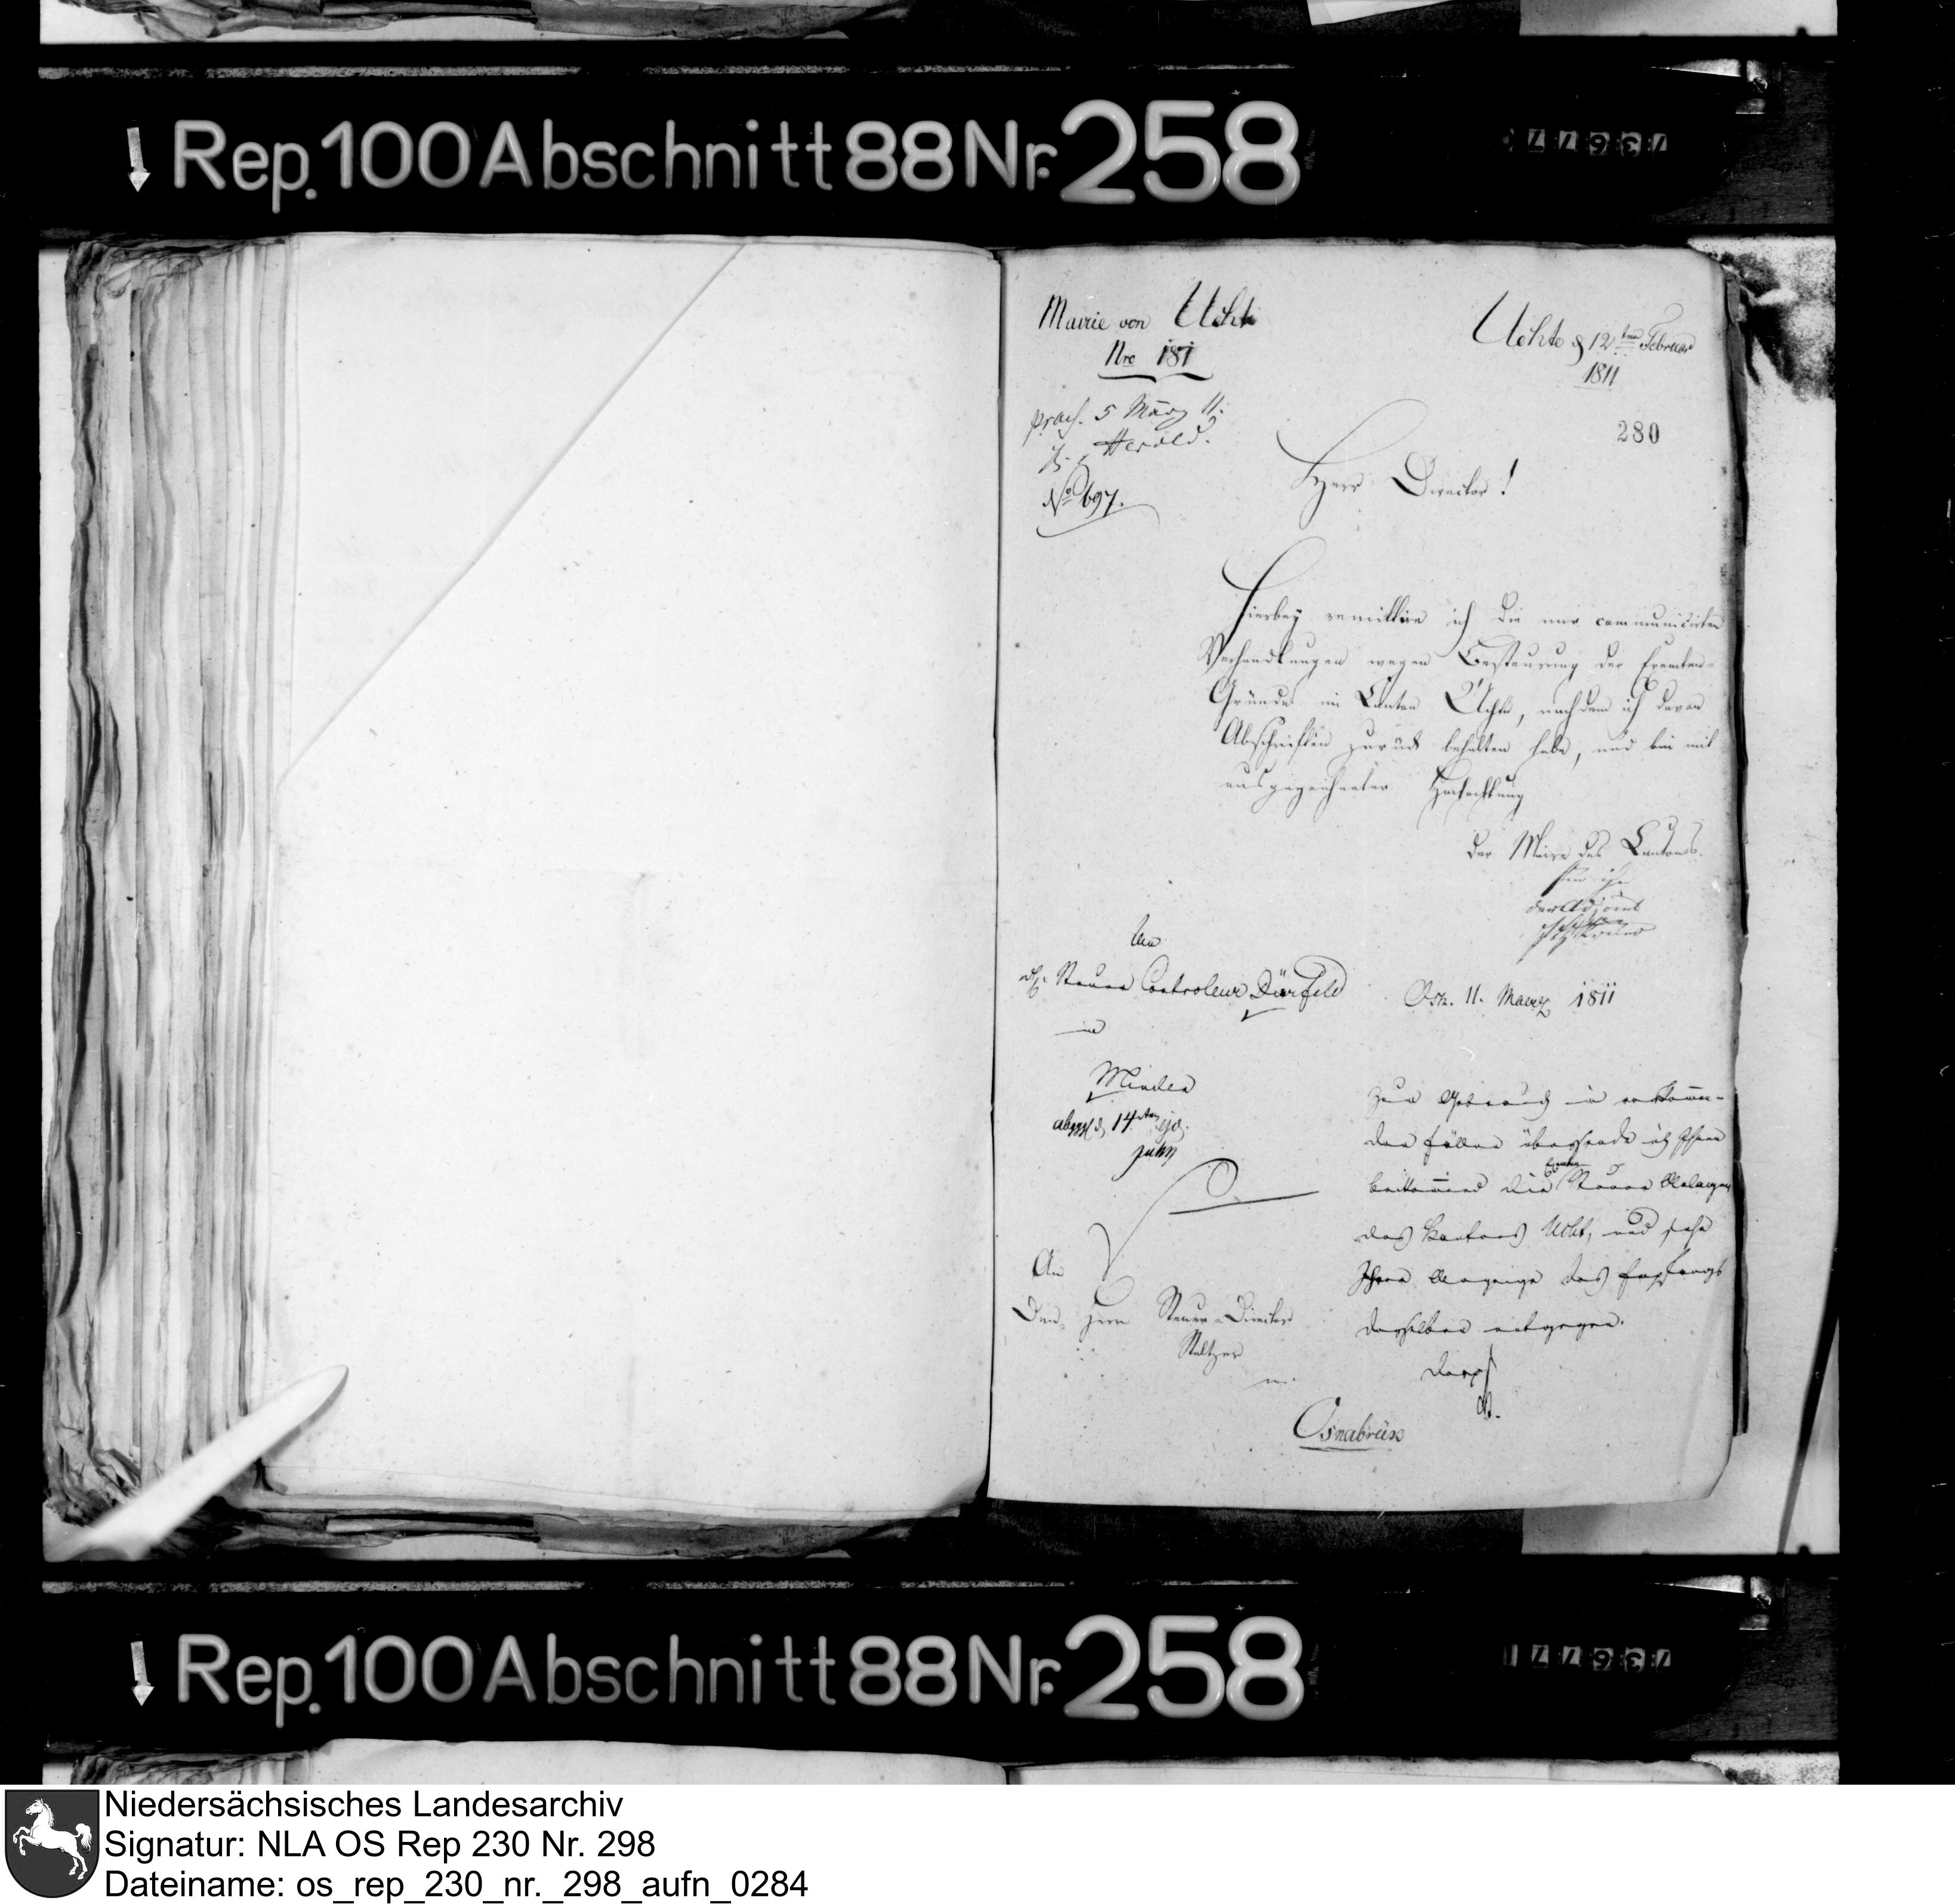 Rep. 100 Abschnitt 88 Nr. 258
Mairie von Uchte
Nro 181
Uchte d 12ten Februar
1811
praes. 5 März 11.
Herold.
No 697.
280
Herr Director!
Hierbey remittire ich die mir communicirten
Verhandlungen wegen Besteurung der Exemten-
Gründe im Canton Uchte, nachdem ich davon
Abschriften zurück behalten habe, und bin mit
ausgezeichneter Hochachtung
Der Maire des Cantons.
für ihn
der Adjoint
An
Steuer Controleur Dürfeld
in
Minden
Osn. 11. Maerz 1811
Zum Gebrauch in vorkommen-
den Fällen übersende ich Ihnen
beikommend die Exemten Steuer Anlagen
des Kantons Ucht, und sehe
Ihrer Anzeige des Empfangs
derselben entgegen.
14ten
An
Den Herrn Steuer-Director
Stültzer
in
Osnabrück
Rep. 100 Abschnitt 88 Nr. 258
Niedersächsisches Landesarchiv
Signatur: NLA OS Rep 230 Nr. 298
Dateiname: os_rep_230_nr._298_aufn_0284